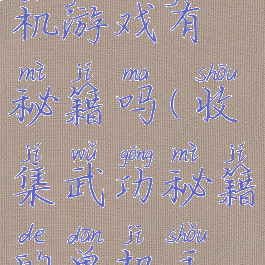 机游戏有
mì jí ma shōu
秘籍吗(收
jí wǔ gōng mì jí
集武功秘籍
de dān jī shǒu
的单机手